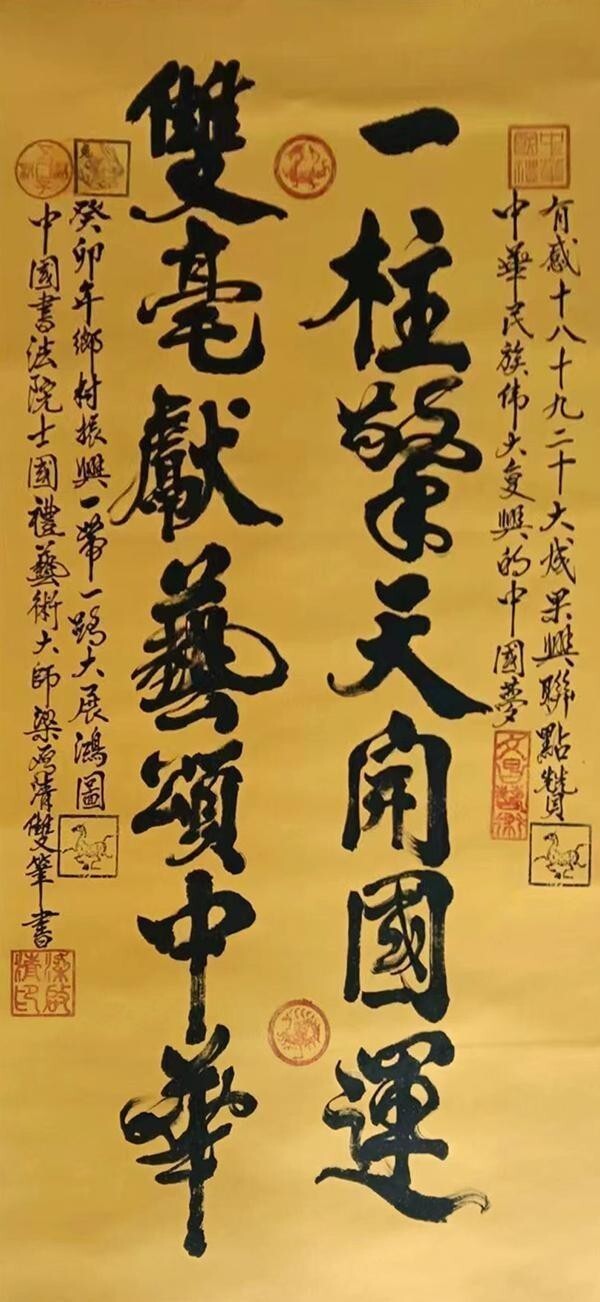 有感十八十九二十大成果興聯點贊
中華民族伟大复興的中國夢
一柱擎天開國運
雙毫獻藝頌中華
癸卯年鄉村振興一帶一路大展鴻圖
中國書法院士國禮藝術大師梁啟清雙筆書
梁啟清印